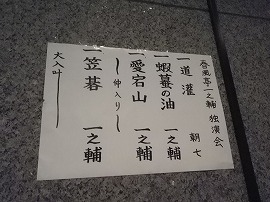 春風亭一之輔 独演会
一 道灌 朝七
一 蝦蟇の油 一之輔
一 愛宕山 一之輔
〜仲入り〜
一 笠碁 一之輔
大入叶